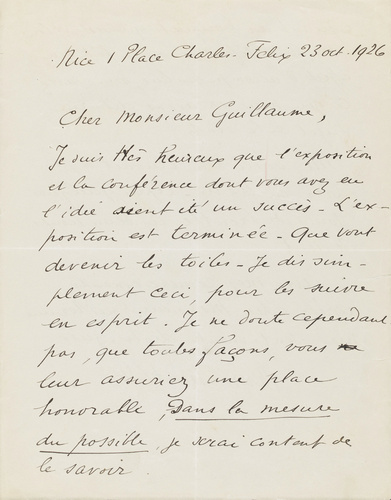 Nice 1 Place Charles-Felix 23 oct. 1926
Cher Monsieur Guillaume,
Je suis très heureux que l'exposition
et la conférence dont vous avez eu
l'idée aient été un succès - L'ex-
position est terminée - Que vont
devenir les toiles - Je dis sim-
plement ceci, pour les suivre
en esprit. Je ne doute cependant
pas, que toutes façons, vous
leur assuriez une place
honorable, dans la mesure
du possible, je serai content de
le savoir.